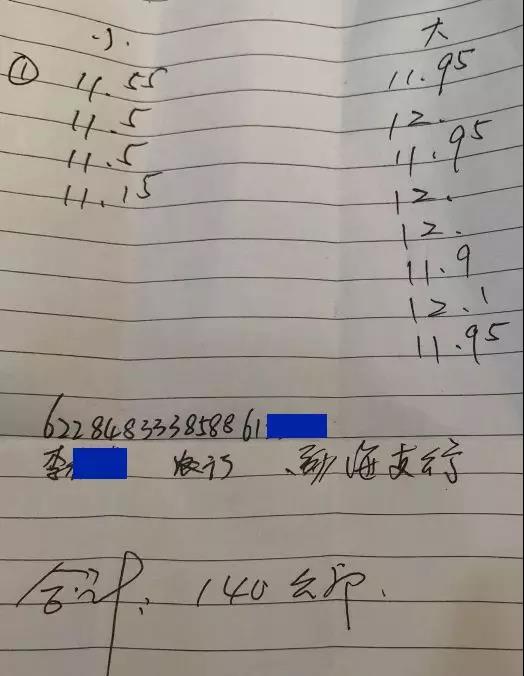 小. 大
① 11.55 11.95
11.5 12.
11.5 11.95
11.15 12.
12.
11.9
12.1
11.95
622848333858861
李 农行 渤海支行
合计: 140公斤.